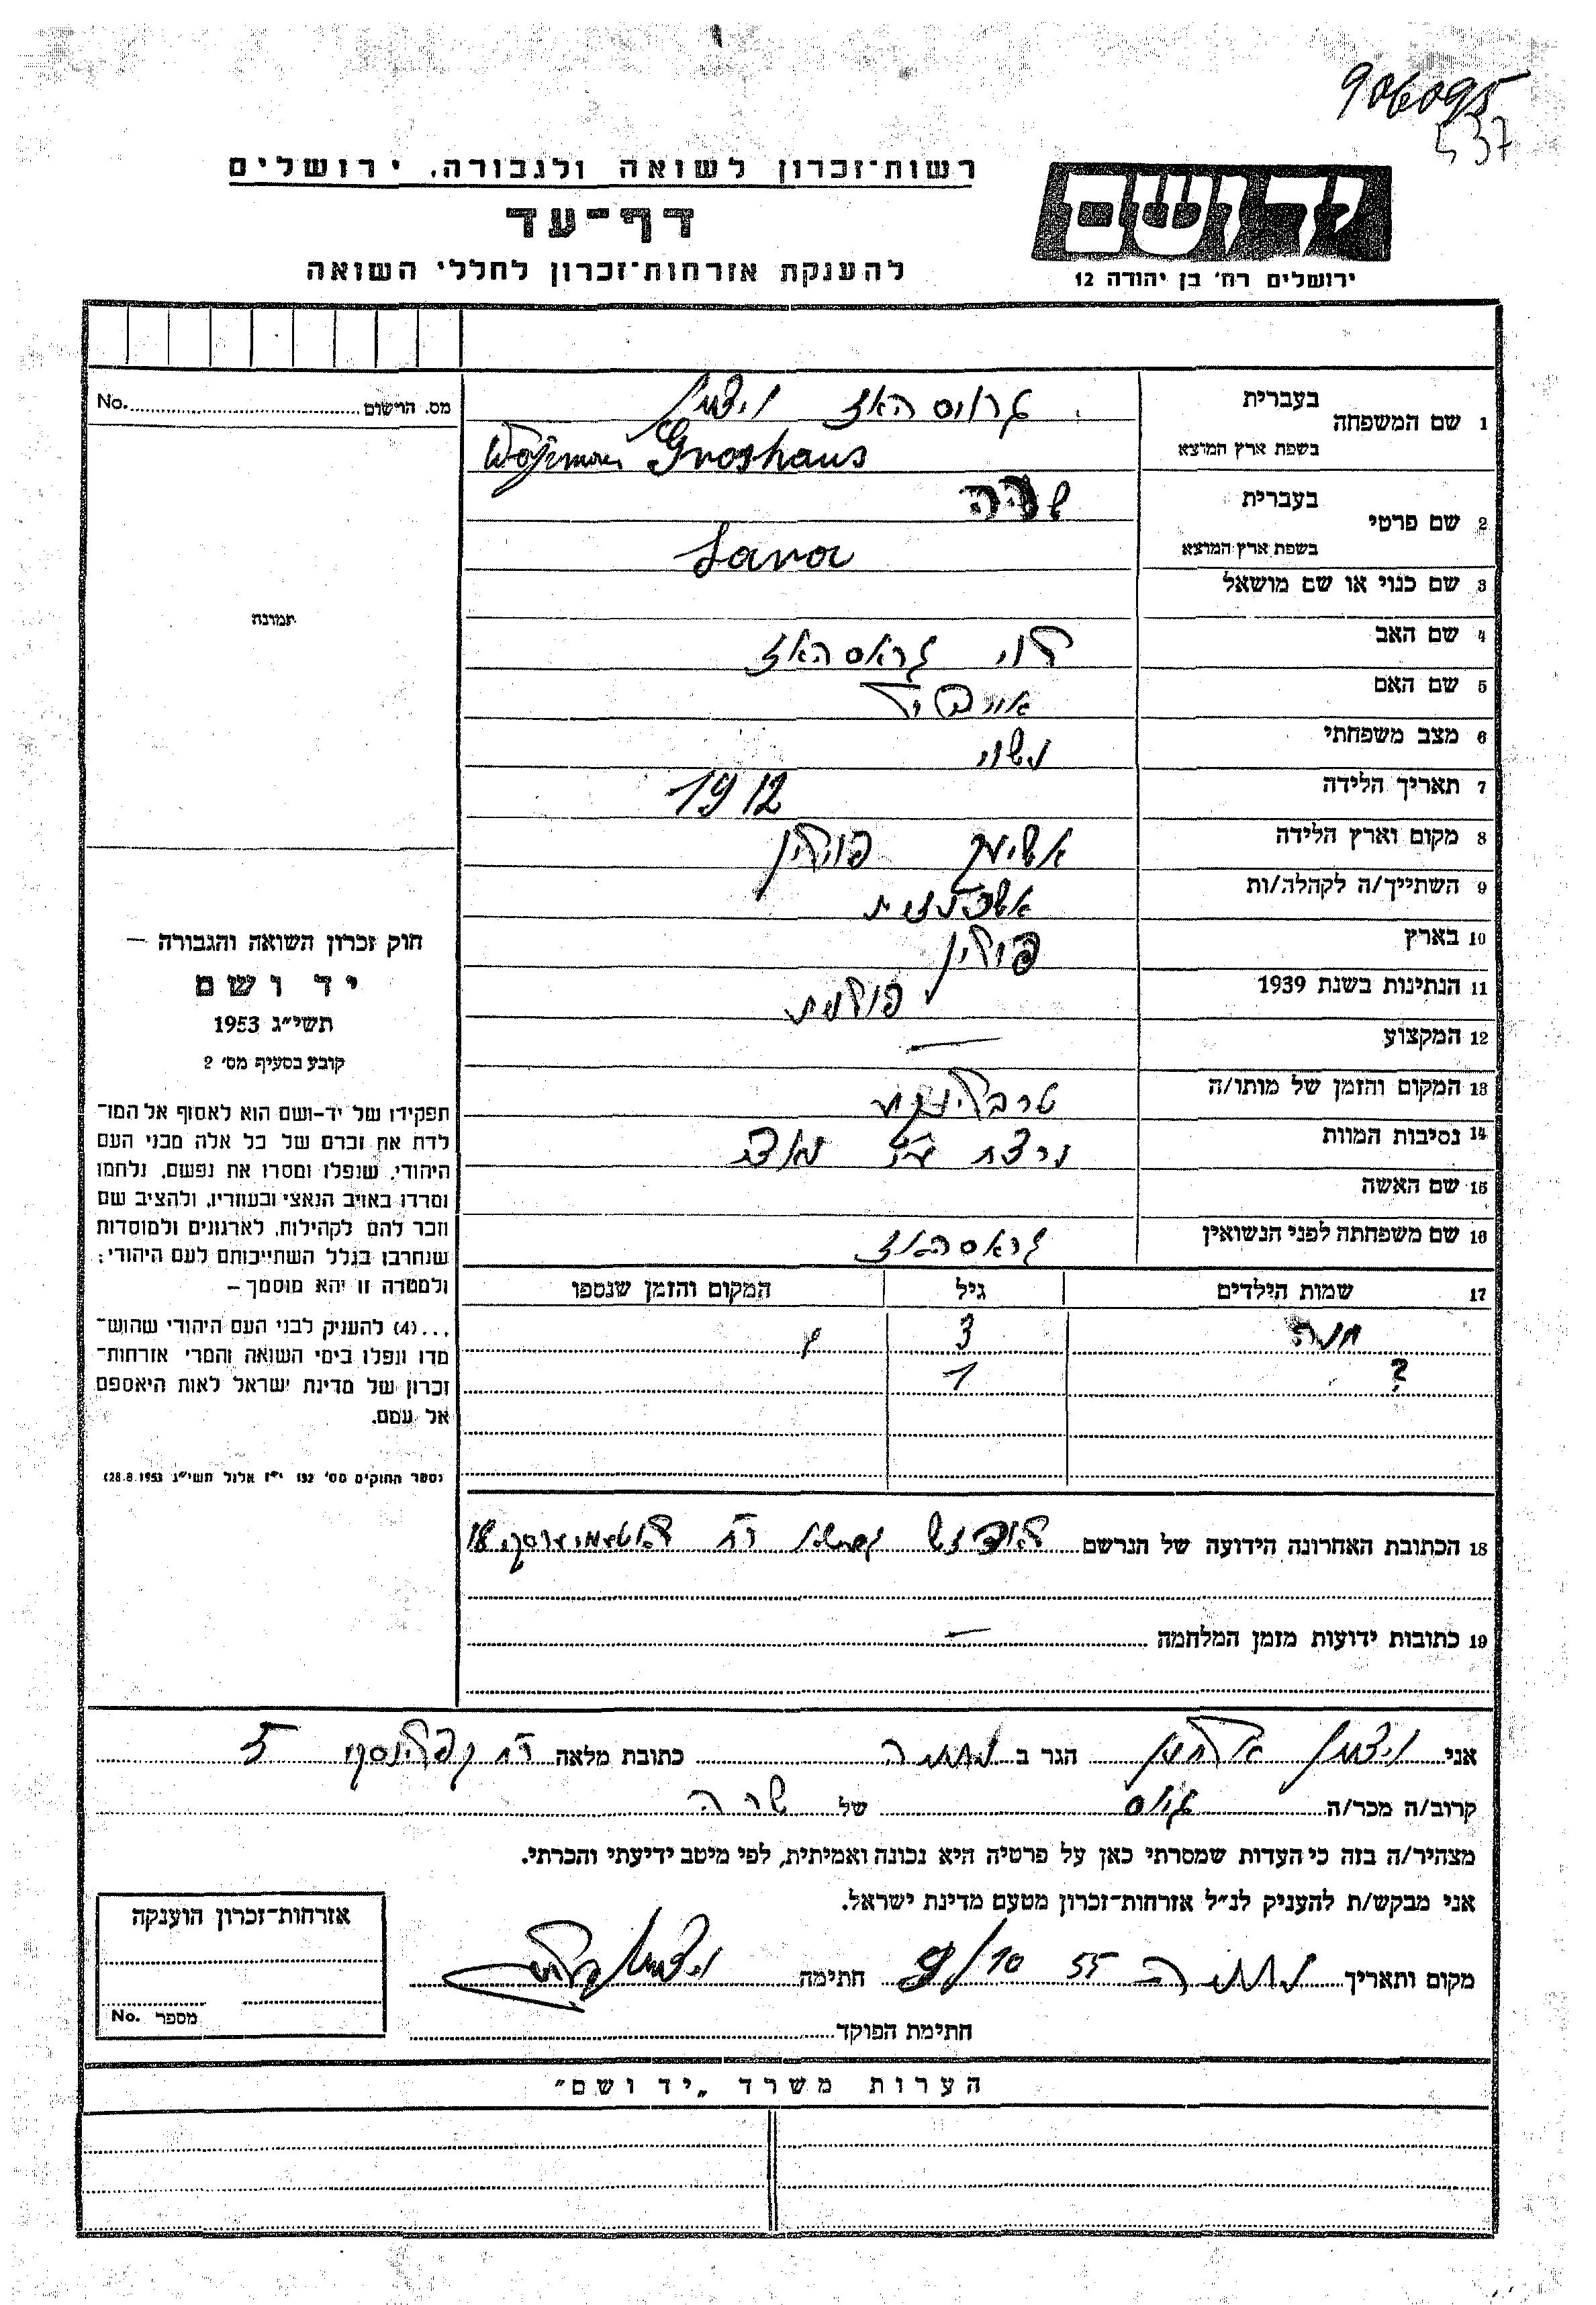 906095
537
רשות־זכרון לשואה ולגבורה, ירושלים
דף־עד
להענקת אזרחות־זכרון לחללי השואה
יד ושם
ירושלים רח' בן יהודה 12
No. מס. הרשום
1 שם המשפחה בעברית גרויסהאז ויצמן
בשפת ארץ המוצא Groshaus
2 שם פרטי בעברית שרה
בשפת ארץ המוצא Sara
3 שם כנוי או שם מושאל
תמונה
4 שם האב לוי גראסהאז
5 שם האם
6 מצב משפחתי נשוי
7 תאריך הלידה 1912
8 מקום וארץ הלידה פוילין
9 השתייך/ה לקהלה/ות אשכנזית
10 בארץ פוילין
11 הנתינות בשנת 1939 פולנית
12 המקצוע —
13 המקום והזמן של מותו/ה טרבלינקה
14 נסיבות המוות
15 שם האשה
16 שם משפחתה לפני הנשואין גראסהאז
17 שמות הילדים גיל המקום והזמן שנספו
חנה 3
? 1
חוק זכרון השואה והגבורה —
יד ושם
תשי״ג 1953
קובע בסעיף מס' 2
תפקידו של יד-ושם הוא לאסוף אל המו־
לדת את זכרם של כל אלה מבני העם
היהודי, שנפלו ומסרו את נפשם, נלחמו
ומרדו באויב הנאצי ובעוזריו, ולהציב שם
וזכר להם לקהילות, לארגונים ולמוסדות
שנחרבו בגלל השתייכותם לעם היהודי;
ולמטרה זו יהא מוסמך —
...(4) להעניק לבני העם היהודי שהוש־
מדו ונפלו בימי השואה והמרי אזרחות־
זכרון של מדינת ישראל לאות היאספם
אל עמם.
(ספר החוקים מס' 132 י״ז אלול תשי״ג 28.8.1953)
18 הכתובת האחרונה הידועה של הנרשם 18
19 כתובות ידועות מזמן המלחמה —
אני ויצמן הגר ב נתניה כתובת מלאה רח 5
קרוב/ה מכר/ה גיס של שרה
מצהיר/ה בזה כי העדות שמסרתי כאן על פרטיה היא נכונה ואמיתית, לפי מיטב ידיעתי והכרתי.
אני מבקש/ת להעניק לנ״ל אזרחות־זכרון מטעם מדינת ישראל.
מקום ותאריך נתניה 55 חתימה ויצמן
חתימת הפוקד
אזרחות־זכרון הוענקה
No. מספר
הערות משרד „יד ושם״